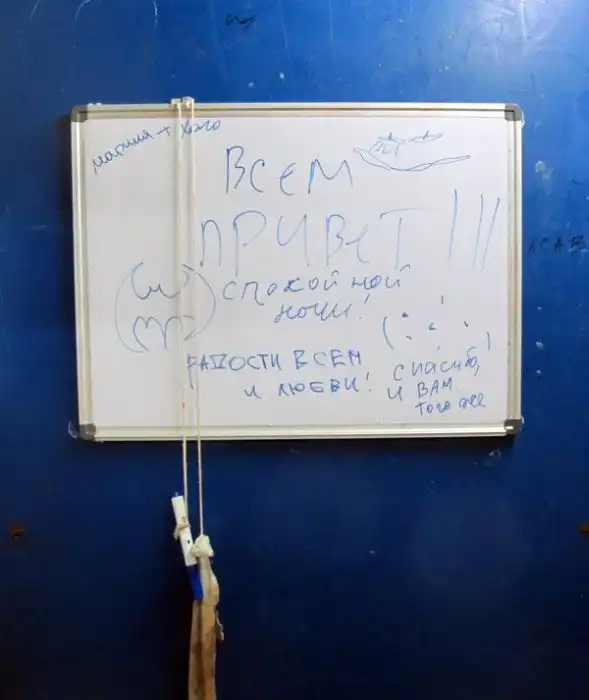 ВСЕМ
ПРИВЕТ!!!
СПОКОЙНОЙ
НОЧИ!
РАДОСТИ ВСЕМ
И ЛЮБВИ!
СПАСИБО,
И ВАМ
ТОГО же